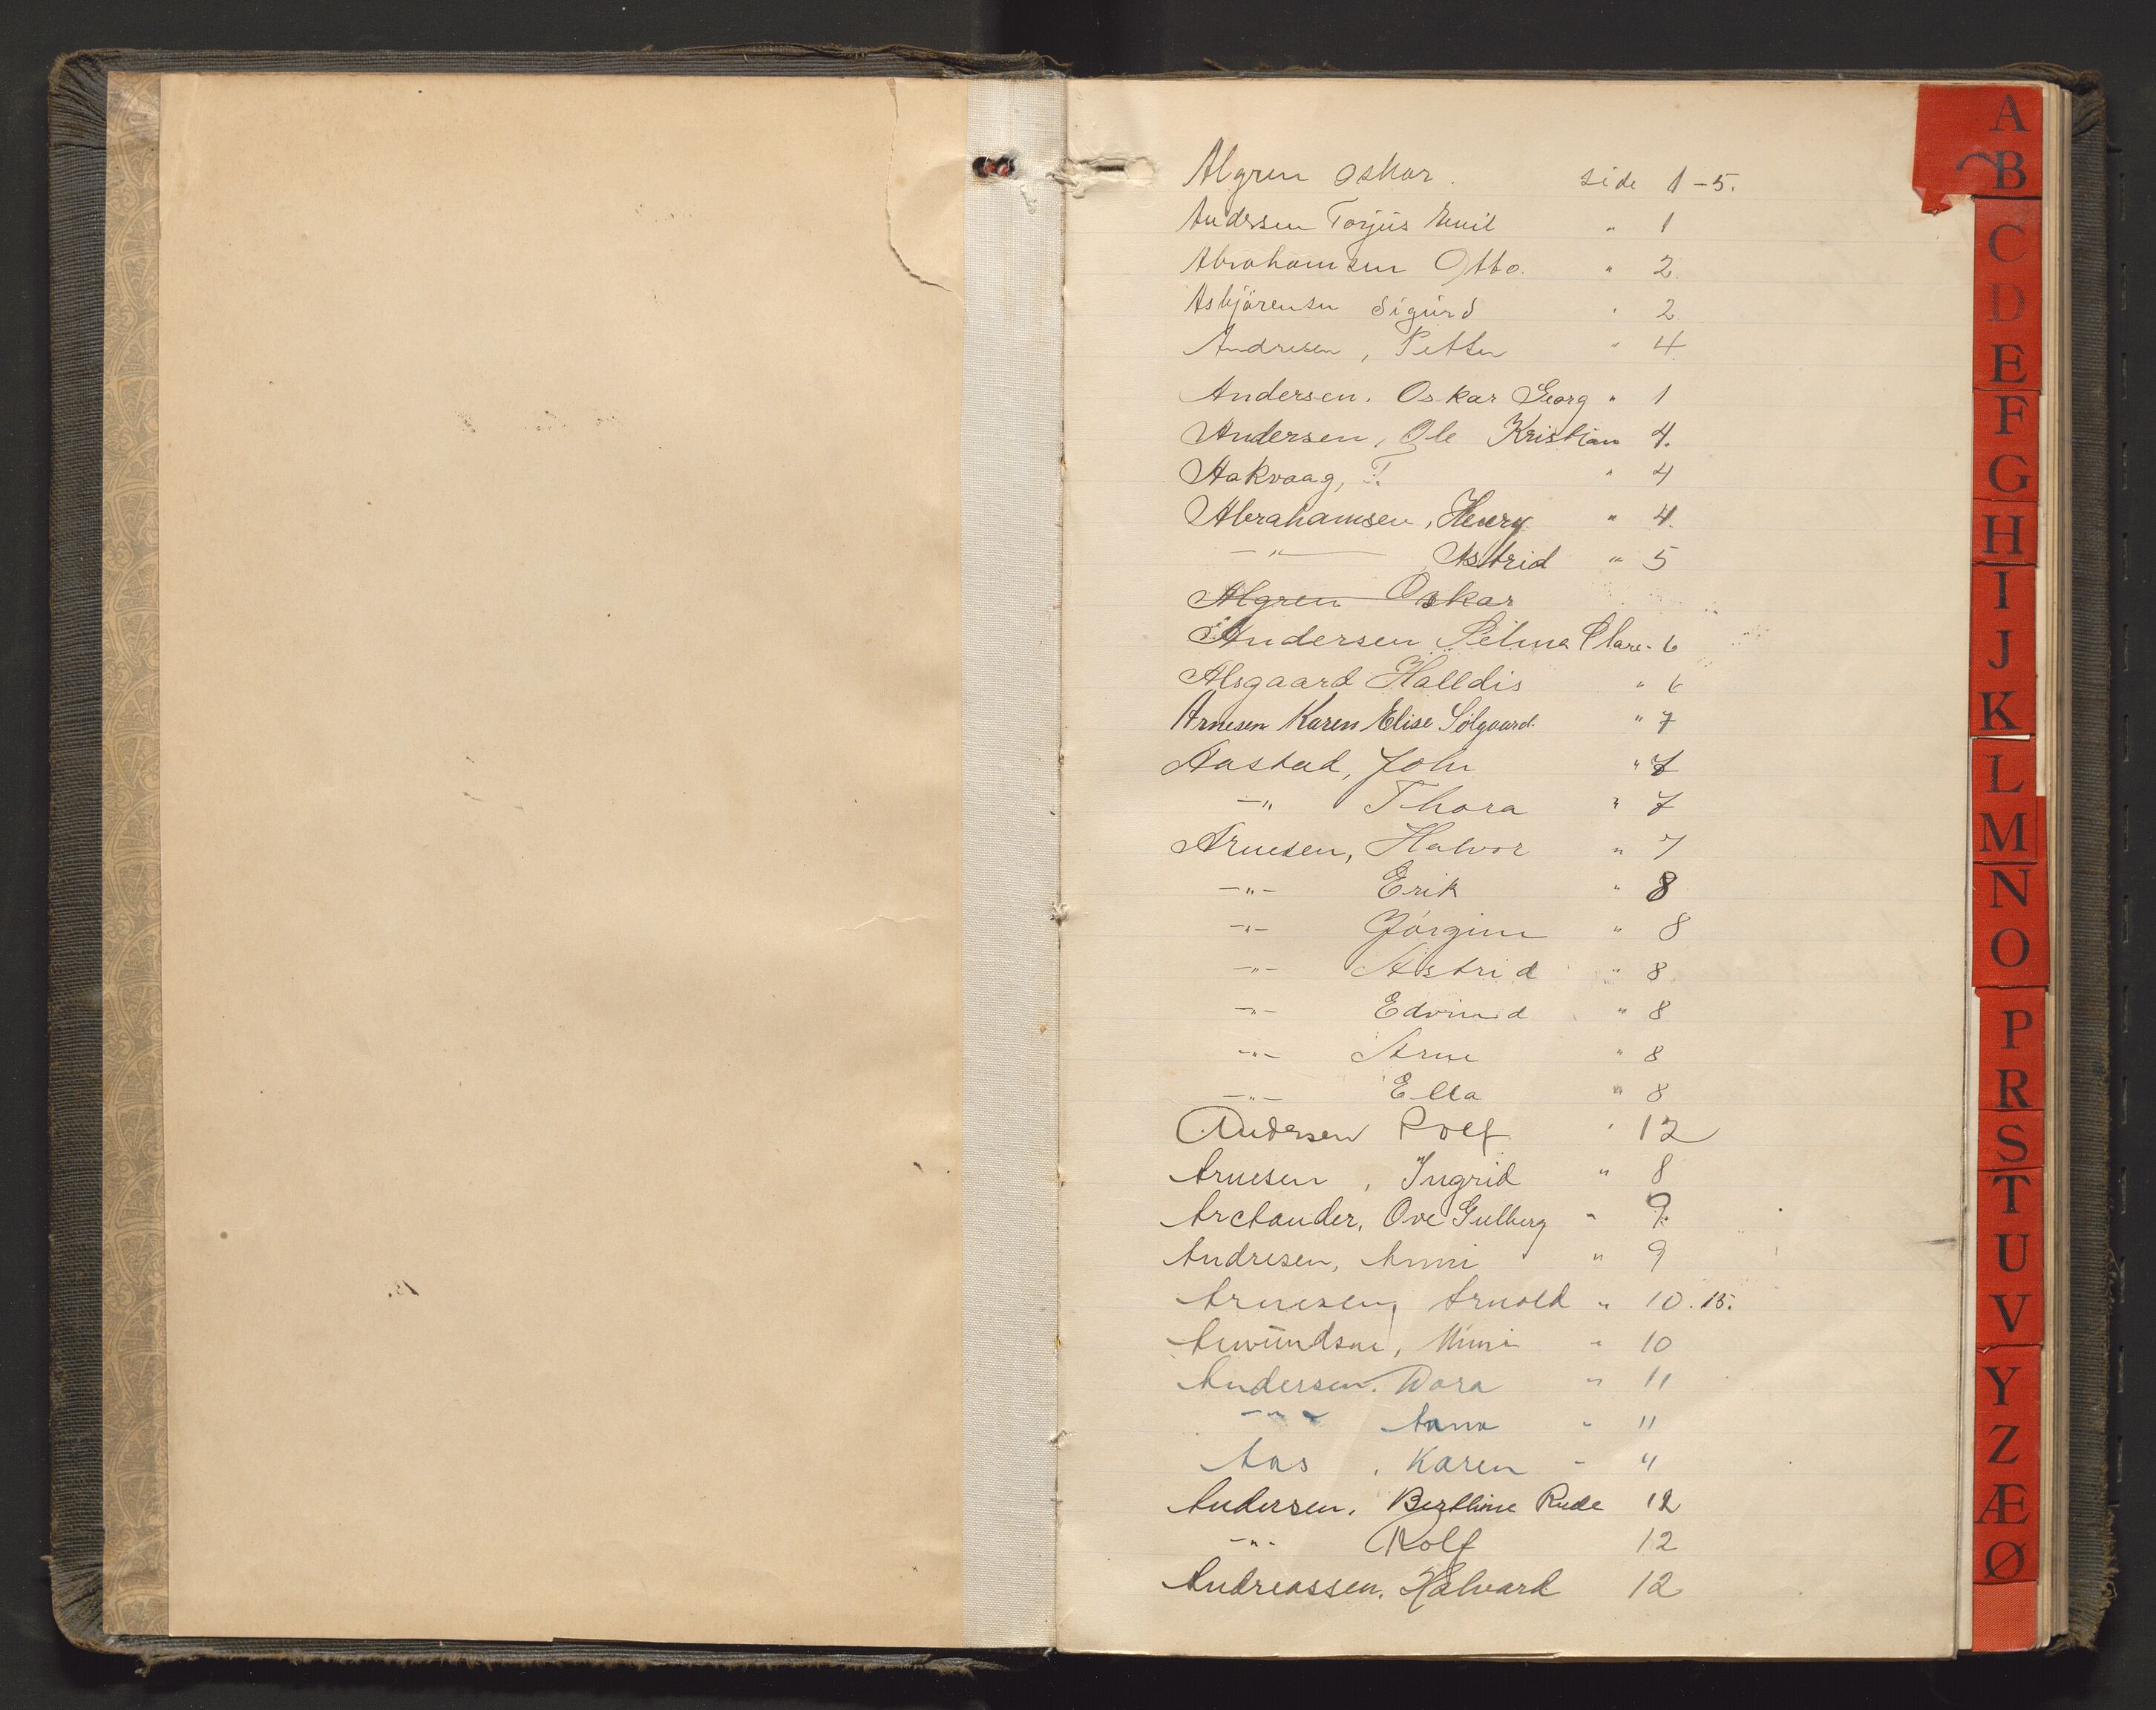 Algren Oskar. side 1-5.
Andersen Torjus Emil " 1
Abrahamsen Otto. " 2.
Asbjörensen Sigurd " 2
Andresen, Petter " 4.
Andersen. Oskar Georg " 1
Andersen, Ole Kristian 4.
Aakvaag, T. " 4
Abrahamsen, Henry " 4.
—"— Astrid " 5
Algren Oskar
Andersen Selma Clare - 6
Alsgaard Halldis " 6
Arnesen Karen Elise Sölgaard. " 7
Aastad, John " 7
—" Thora " 7
Arnesen, Halvor " 7
—"— Erik " 8
—"— Jörgine " 8
—"— Astrid " 8
—"— Edvind " 8
—"— Arne " 8
—"— Ella " 8
Andersen Rolf " 12
Arnesen, Ingrid " 8
Arctander, Ove Gulberg " 9.
Andresen, Anni " 9
Arnesen, Arnold " 10. 15.
Amundsen, Mimi " 10
Andersen. Dora " 11
—"— Anna " 11
Aas, Karen " 11
Andersen. Berthine Rude 12
—"— Rolf 12
Andreassen. Halvard 12
A
B
C
D
E
F
G
H
I
J
K
L
M
N
O
P
R
S
T
U
V
Y
Z
Æ
Ø